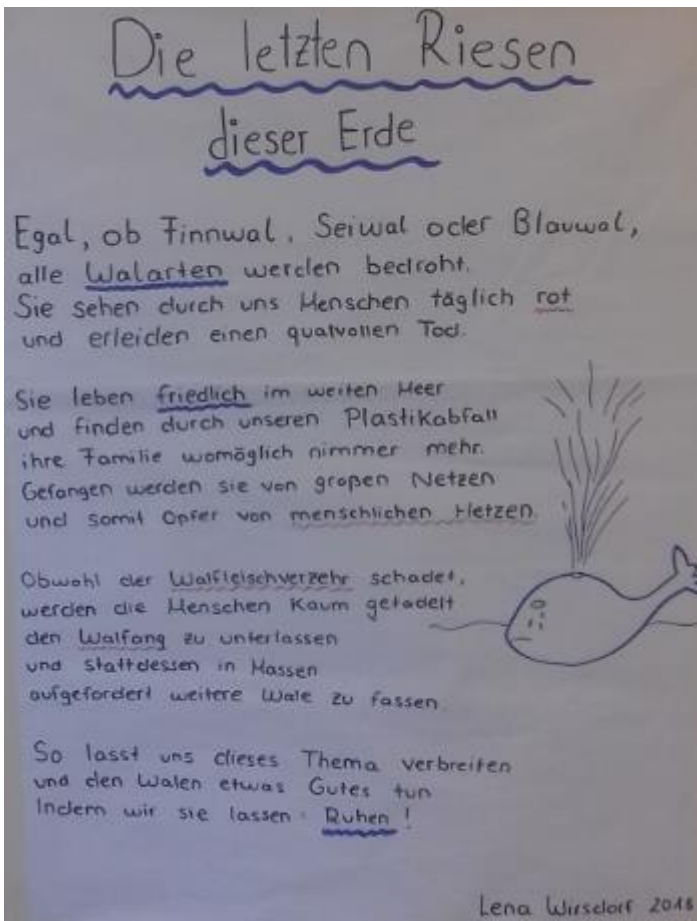 Die letzten Riesen
dieser Erde
Egal, ob Finnwal, Seiwal oder Blauwal,
alle Walarten werden bedroht.
Sie sehen durch uns Menschen täglich rot
und erleiden einen qualvollen Tod.
Sie leben friedlich im weiten Meer
und finden durch unseren Plastikabfall
ihre Familie womöglich nimmer mehr.
Gefangen werden sie von großen Netzen
und somit Opfer von menschlichen Hetzen.
Obwohl der Walfleischverzehr schadet,
werden die Menschen kaum getadelt
den Walfang zu unterlassen
und stattdessen in Massen
aufgefordert weitere Wale zu fassen.
So lasst uns dieses Thema verbreiten
und den Walen etwas Gutes tun
Indem wir sie lassen: Ruhen!
Lena Wirsdorf 2018